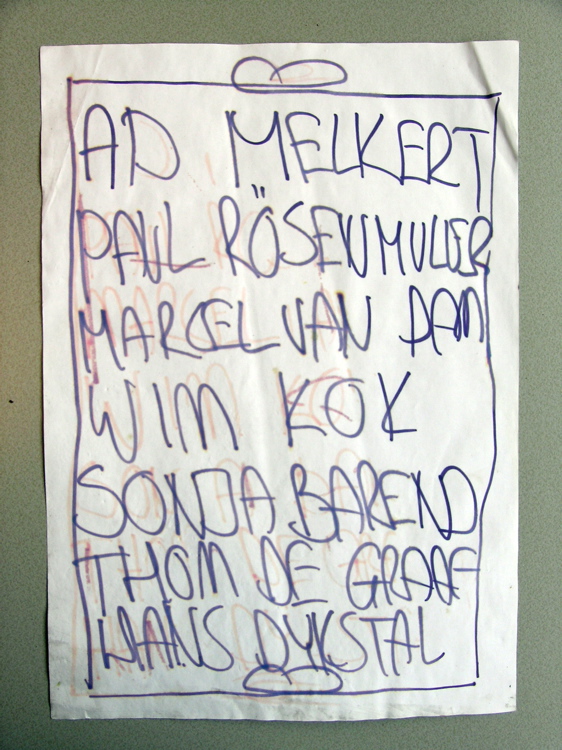 AD MELKERT
PAUL RÖSENMULLER
MARCEL VAN DAM
WIM KOK
SONJA BAREND
THOM DE GRAAF
HANS DYKSTAL